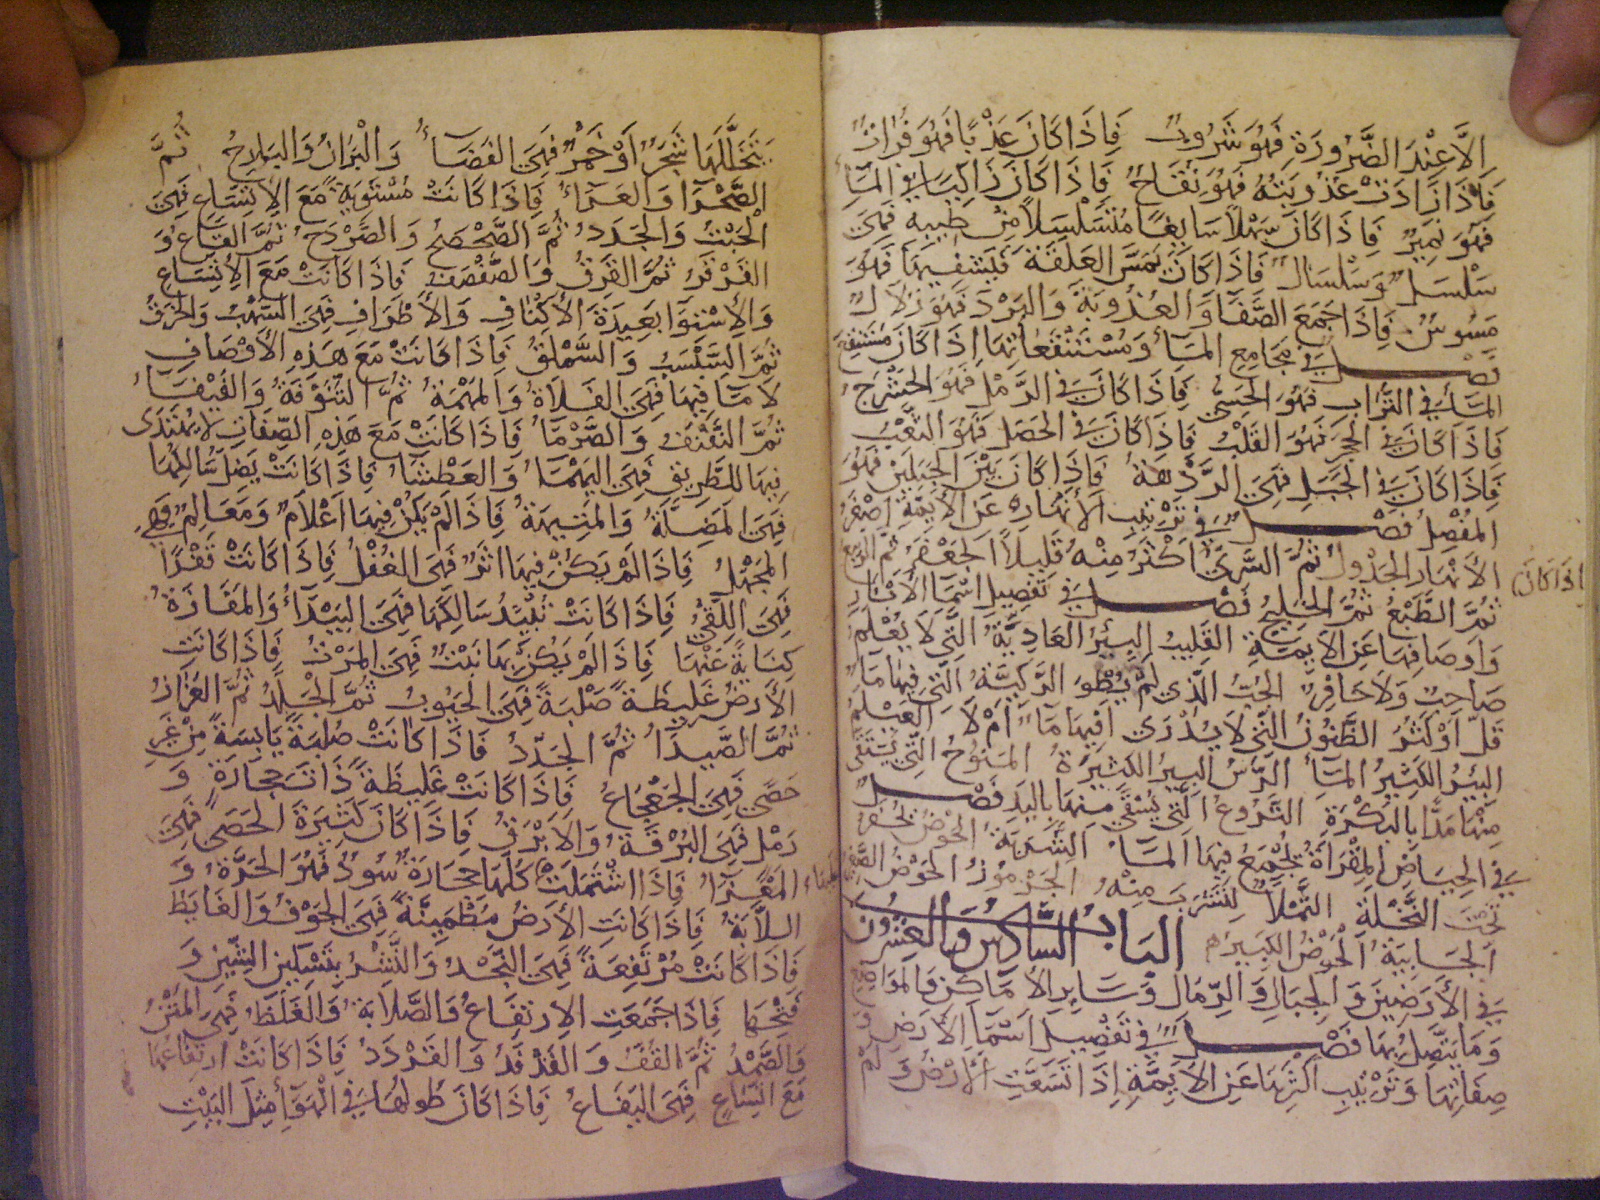 اِلَّا عِنْدَ الضَّرُورَةِ فَهُوَ شَرُوبٌ فَاِذَا كَانَ عَذْبًا فَهُوَ فُرَاتٌ
فَاِذَا زَادَتْ عُذُوبَتُهُ فَهُوَ نُقَاخٌ فَاِذَا كَانَ زَاكِيًا فِي المَاءِ
فَهُوَ نَمِيرٌ فَاِذَا كَانَ سَهْلًا سَايِغًا مُتَسَلْسِلًا مِنْ طِيبِهِ فَهِيَ
سَلْسَلٌ وَسَلْسَالٌ فَاِذَا كَانَ يَمَسُّ الغُلَّةَ فَيَشْفِيهَا فَهُوَ
مَسُوسٌ فَاِذَا جَمَعَ الصَّفَا وَالعُذُوبَةَ وَالبَرْدَ فَهُوَ زُلَالٌ
فَصْلٌ فِي مَجَامِعِ المَاءِ وَمُسْتَنْقَعَاتِهَا اِذَا كَانَ مُسْتَنْقِعَ
المَاءِ فِي التُّرَابِ فَهُوَ الحَسْيُ فَاِذَا كَانَ فِي الرَّمْلِ فَهُوَ الحَشْرَجُ
فَاِذَا كَانَ فِي الحَجَرِ فَهُوَ القَلْتُ فَاِذَا كَانَ فِي الحَصَى فَهُوَ الثَّغْبُ
فَاِذَا كَانَ فِي الجَبَلِ فَهِيَ الرَّدْهَةُ فَاِذَا كَانَ بَيْنَ الجَبَلَيْنِ فَهُوَ
المُفْصِلُ فَصْلٌ فِي تَرْتِيبِ الأَنْهَارِ عَنِ الأَيِمَّةِ اَصْغَرُ
الأَنْهَارِ الجَدْوَلُ ثُمَّ السَّرِيُّ اَكْثَرُ مِنْهُ قَلِيلًا الجَعْفَرُ ثُمَّ الرَّبِيعُ
اِذَا كَانَ
ثُمَّ الطَّبْعُ ثُمَّ الخَلِيجُ فَصْلٌ فِي تَفْصِيلِ اَسْمَاءِ الأَبْآرِ
وَاَوصَافِهَا عَنِ الأَيِمَّةِ القَلِيبُ البِئْرُ العَادِيَّةُ الَّتِي لَا يُعْلَمُ
صَاحِبٌ وَلَا حَافِرٌ الجُبُّ الَّذِي لَمْ يُطْوَ الرَّكِيَّةُ الَّتِي فِيهَا مَاءٌ
قَلَّ اَوْ كَثُرَ الظَّنُونُ الَّتِي لَا يُدْرَى اَفِيهَا مَاءٌ اَمْ لَا العَيْلَمُ
البِئْرُ الكَثِيرُ المَاءِ الرَّسُّ البِيرُ الكَبِيرَةُ المَتُوحُ الَّتِي يُسْتَقَى
مِنْهَا مَدًّا بِالبَكْرَةِ النَّزُوعُ الَّتِي يُسْتَقَى مِنهَا بِاليَدِ فَصْلٌ
فِي الحِيَاضِ المِقْرَاةُ يُجْمَعُ فِيهَا المَاءُ الشَّرَبَةُ الحَوْضُ يُحْفَرُ
تَحْتَ النَّخْلَةِ لِتَشْرَبَ مِنْهُ الجُرْمُوزُ الحَوْضُ الصَّغِيرُ
الجَابِيَةُ الحَوْضُ الكَبِيرُ البَابُ السَّادِسُ وَالعِشْرُونَ
فِي الأَرَضِينَ وَالجِبَالِ وَالرِّمَالِ وَسَايِرِ الأَمَاكِنِ وَالمَوَاضِعِ
وَمَا يَتَّصِلُ بِهَا فَصْلٌ فِي تَفْصِيلِ اَسْمَاءِ الأَرَضِينَ وَ
صِفَاتِهَا وَتَرْتِيبِ اَكْثَرِهَا عَنِ الأَيِمَّةِ اِذَا اتَّسَعَتِ الأَرْضُ وَلَمْ
يَتَخَلَّلْهَا شَجَرٌ اَوْ خَمَرٌ فَهِيَ الفَضَاءُ وَالبَرَازُ وَالبَرَاحُ ثُمَّ
الصَّحْرَا وَالعَرَاءُ فَاِذَا كَانَتْ مُسْتَوِيَةً مَعَ الإتِّسَاعِ فَهِيَ
الخَبْتُ وَالجَدَدُ ثُمَّ الصَّحْصَحُ وَالصَّرْدَحُ ثُمَّ القَاعُ وَ
القَرْقَرُ ثُمَّ القَرِقُ وَالصَّفْصَفُ فَاِذَا كَانَتْ مَعَ الإتِّسَاعِ
وَالإسْتِوَاءِ بَعِيدَةَ الأَكْنَافِ وَالأَطْرَافِ فَهِيَ السَّهْبُ وَالخَرْقُ
ثُمَّ السَّبْسَبُ وَالسَّمْلَقُ فَاِذَا كَانَتْ مَعَ هَذِهِ الأَوْصَافِ
لَا مَاءَ فِيهَا فَهِيَ الفَلَاةُ وَالمَهْمَهُ ثُمَّ التَّنُوفَةُ وَالفَيْفَاءُ
ثُمَّ النَّفْنَفُ وَالصَّرْمَاءُ فَاِذَا كَانَتْ مَعَ هَذِهِ الصِّفَاتِ لَا يُهْتَدَى
فِيهَا لِلطَّرِيقِ فَهِيَ اليَهْمَاءُ وَالعَطْشَاءُ فَاِذَا كَانَتْ يُضِلُّ سَالِكَهَا
فَهِيَ المَضِلَّةُ وَالمَتِيهَةُ فَاِذَا لَمْ يَكُنْ فِيهَا اَعْلَامٌ وَمَعَالِمُ فَهِيَ
المَجْهَلُ فَاِذَا لَمْ يَكُنْ فِيهَا اَثَرٌ فَهِيَ الغُفْلُ فَاِذَا كَانَتْ قَفْرًا
فَهِيَ القِيُّ فَاِذَا كَانَتْ تُبِيدُ سَالِكَهَا فَهِيَ البَيْدَاءُ وَالمَفَازَةُ
كِنَايَةً عَنْهَا فَاِذَا لَمْ يَكُنْ بِهَا نَبْتٌ فَهِيَ المَرْتُ فَاِذَا كَانَتِ
الأَرْضُ غَلِيظَةً صَلْبَةً فَهِيَ الجَبُوبُ ثُمَّ الجَلَدُ ثُمَّ العَزَازُ
ثُمَّ الصَّيْدَاءُ ثُمَّ الجَدَدُ فَاِذَا كَانَتْ صُلْبَةً يَابِسَةً مِنْ غَيْرِ
حَصًى فَهِيَ الجَعْجَاعُ فَاِذَا كَانَتْ غَلِيظَةً ذَاتَ حِجَارَةٍ وَ
رَمْلٍ فَهِيَ البُرْقَةُ وَالأَبْرَقُ فَاِذَا كَانَ كَثِيرَةَ الحَصَى فَهِيَ
المَعْزَاءُ فَاِذَا اشْتَمَلَتْ كُلَّهَا حِجَارَةٌ سُودٌ فَهُوَ الحَرَّةُ وَ
اللَّابَةُ فَاِذَا كَانَتِ الأَرْضُ مُطْمَيِنَّةً فَهِيَ الجَوْفُ وَالغَايِطُ
فَاِذَا كَانَتْ مُرْتَفِعَةً فَهِيَ النَّجْدُ وَالنَّشْزُ بِتَسْكِينِ الشِّينِ وَ
فَتْحِهَا فَاِذَا جَمَعَتِ الإرْتِفَاعَ وَالصَّلَابَةَ وَالغِلَظَ فَهِيَ المَتْنُ
وَالصَّمْدُ ثُمَّ القُفُّ وَالفَدْفَدُ وَالقَرْدَدُ فَاِذَا كَانَتْ ارْتِفَاعُهَا
مَعَ اتِّسَاعٍ فَهِيَ اليَفَاعُ فَاِذَا كَانَ طُولُهَا فِي الهَوَاءِ مِثْلَ البَيْتِ